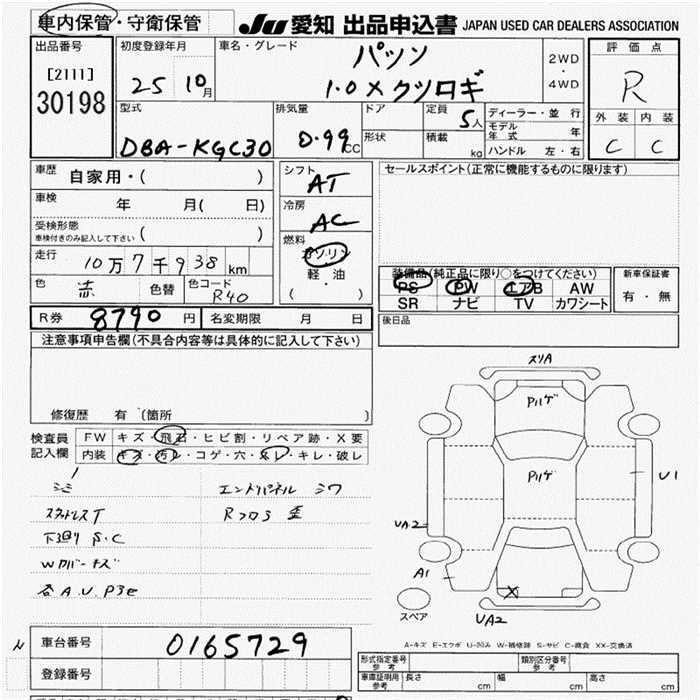 車内保管・守衛保管
JU 愛知 出品申込書 JAPAN USED CAR DEALERS ASSOCIATION
出品番号
[2111]
30198
初度登録年月
25 10月
車名・グレード
パッソ
1.0 X クツロギ
2WD
・
4WD
評価点
R
外装 内装
C C
型式
DBA-KGC30
排気量
0.99cc
ドア
形状
定員
5人
積載
kg
ディーラー・並行
モデル年式 年
ハンドル 左・右
車歴
自家用・( )
車検
年 月( 日)
受検形態
車検付きのみ記入して下さい ( )
走行
10万7千938km
色
赤
色替
色コード
R40
シフト
AT
冷房
AC
燃料
ガソリン
軽・油
( ・ )
セールスポイント(正常に機能するものに限ります)
装備品(純正品に限り○をつけてください)
PS PW エアB AW
SR ナビ TV カワシート
新車保証書
有・無
後日品
R券 8790円
名変期限 月 日
注意事項申告欄(不具合内容等は具体的に記入して下さい)
修復歴 有(箇所 )
検査員
記入欄
FW キズ・飛石・ヒビ割・リペア跡・X要
内装 キズ・汚レ・コゲ・穴・スレ・キレ・破レ
シミ
スタッドレスT
下廻り S・C
Wカバーキズ
各A.U.P3e
エンドパネル シワ
Rフロア 歪
スリA
Pハゲ
Pハゲ
U1
UA2
A1
X
UA2
スペア
A-キズ E-エクボ U-凹み W-補修跡 S-サビ C-腐食 XX-交換済
車台番号
0165729
登録番号
形式指定番号
参考
類別区分番号
参考
車庫証明用
参考
長さ cm
幅 cm
高さ cm